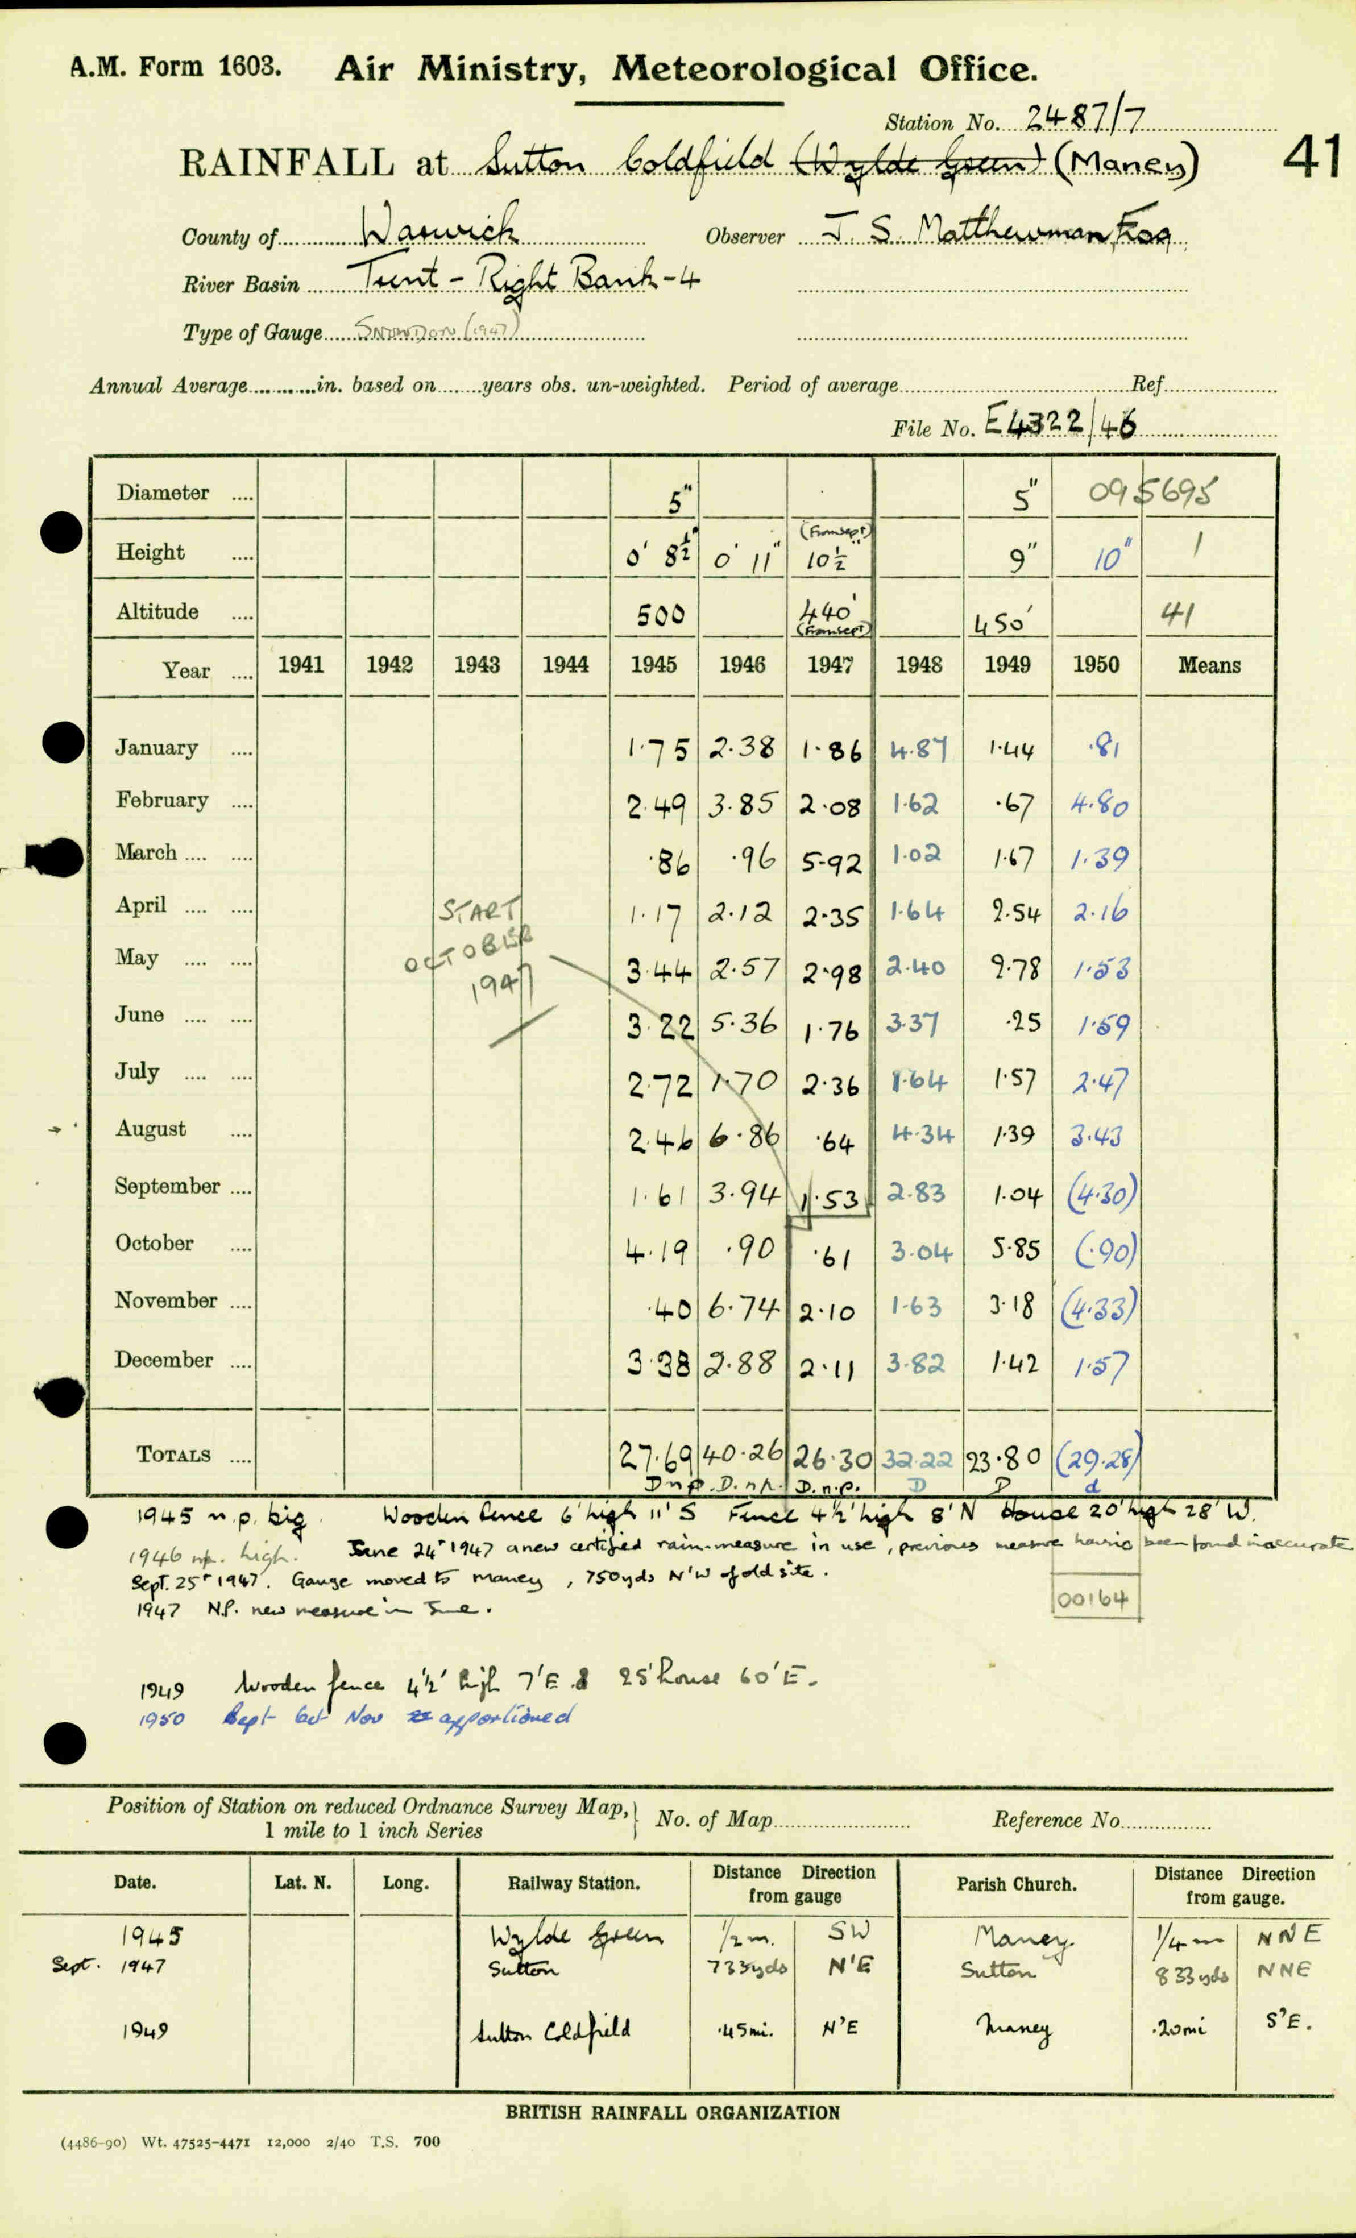 A.M. Form 1603. Air Ministry, Meteorological Office.
Station No. 2487/7
RAINFALL at Sutton Coldfield (Wylde Green) (Maney) 41
County of Warwick Observer J. S. Matthewman, Esq.
River Basin Trent - Right Bank - 4
Type of Gauge SNOWDON (1947)
Annual Average in. based on years obs. un-weighted. Period of average Ref.
File No. E4322/46
Diameter 5" 5" 095695
Height 0' 8½" 0' 11" (From Sept) 10½" 9" 10" 1
Altitude 500 440' (From Sept) 450' 41
Year 1941 1942 1943 1944 1945 1946 1947 1948 1949 1950 Means
January 1.75 2.38 1.86 4.87 1.44 .81
February 2.49 3.85 2.08 1.62 .67 4.80
March .86 .96 5.92 1.02 1.67 1.39
April START 1.17 2.12 2.35 1.64 2.54 2.16
May OCTOBER 3.44 2.57 2.98 2.40 2.78 1.53
1947
June 3.22 5.36 1.76 3.37 .25 1.59
July 2.72 1.70 2.36 1.64 1.57 2.47
August 2.46 6.86 .64 4.34 1.39 3.43
September 1.61 3.94 1.53 2.83 1.04 (4.30)
October 4.19 .90 .61 3.04 5.85 (.90)
November .40 6.74 2.10 1.63 3.18 (4.33)
December 3.38 2.88 2.11 3.82 1.42 1.57
TOTALS 27.69 40.26 26.30 32.22 23.80 (29.28)
D n p. D. n p. D. n. p. D D d
1945 n. p. big. Wooden fence 6' high 11' S Fence 4½' high 8' N House 20' high 28' W.
1946 np. high. June 24th 1947 a new certified rain-measure in use, previous measure having been found inaccurate
Sept. 25th 1947. Gauge moved to Maney, 750yds N'W of old site.
1947 N.P. new measure in June. 00164
1949 Wooden fence 4½' high 7'E & 25' house 60'E.
1950 Sept Oct Nov apportioned
Position of Station on reduced Ordnance Survey Map, No. of Map Reference No.
1 mile to 1 inch Series
Date. Lat. N. Long. Railway Station. Distance Direction from gauge Parish Church. Distance Direction from gauge.
1945 Wylde Green 1/2 m. SW Maney. 1/4 m NNE
Sept. 1947 Sutton 733yds N'E Sutton 833 yds NNE
1949 Sutton Coldfield .45mi. N'E Maney .20mi S'E.
BRITISH RAINFALL ORGANIZATION
(4486-90) Wt. 47525-4471 12,000 2/40 T.S. 700